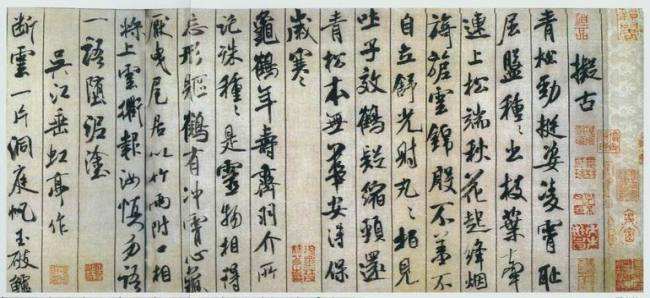 擬古
青松勁挺姿凌霄恥
屈盤種々出枝葉牽
連上松端秋花起絳烟
旖旎雲錦殷不羞不
自立舒光射丸々柏見
吐子效鶴疑縮頸還
青松本無華安得保
歲寒
龜鶴年壽齊羽介所
託殊種々是靈物相得
忘形軀鶴有沖霄心龜
厭曳尾居以竹兩附口相
將上雲衢報汝慎勿語
一語墮泥塗
吳江垂虹亭作
斷雲一片洞庭帆玉破鱸